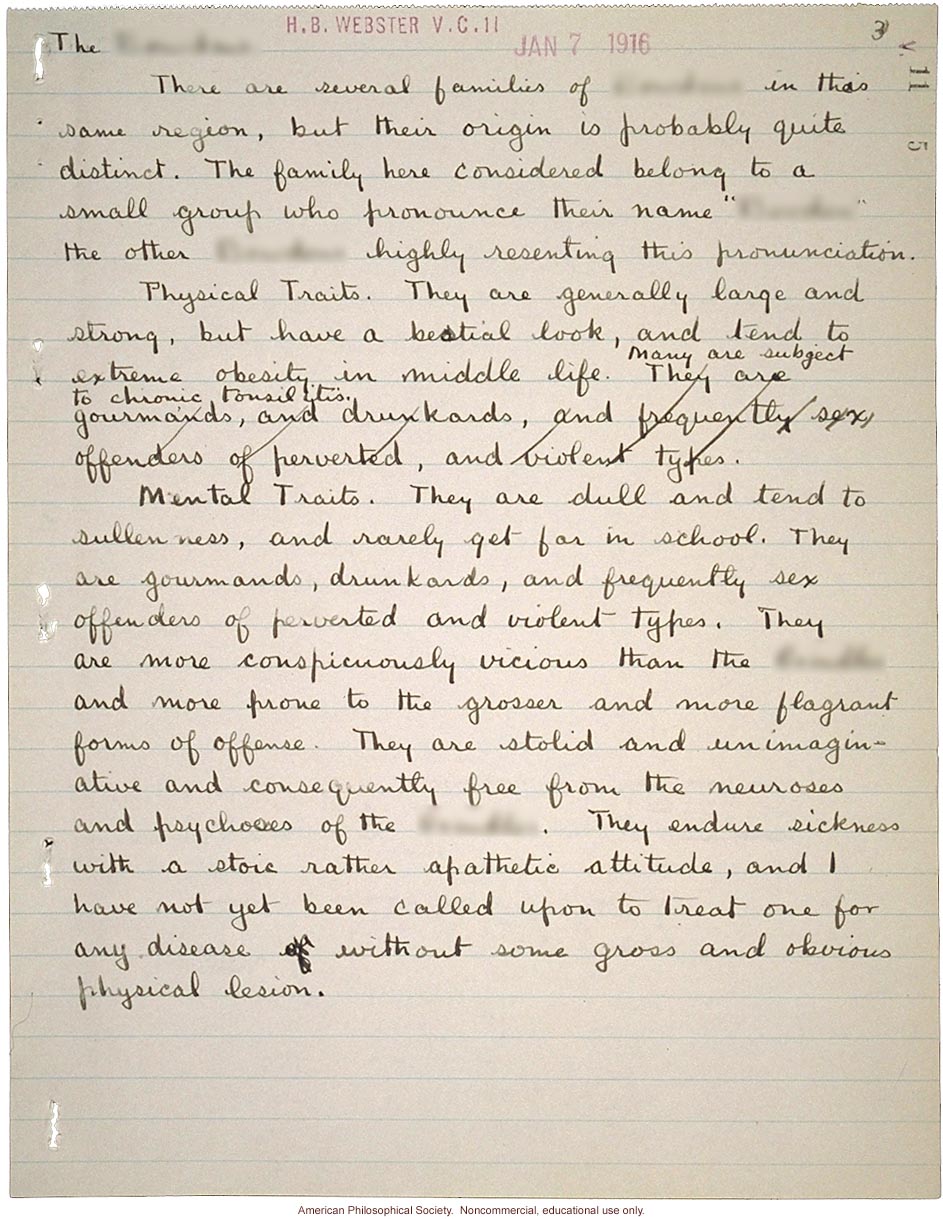 H.B. WEBSTER V.C.11
JAN 7 1916
3
The
There are several families of in this
same region, but their origin is probably quite
distinct. The family here considered belong to a
small group who pronounce their name " "
the other highly resenting this pronunciation.
Physical Traits. They are generally large and
strong, but have a bestial look, and tend to
Many are subject
extreme obesity in middle life. They are
to chronic tonsilitis.
gourmands, and drunkards, and frequently sex
offenders of perverted, and violent types.
Mental Traits. They are dull and tend to
sullenness, and rarely get far in school. They
are gourmands, drunkards, and frequently sex
offenders of perverted and violent types. They
are more conspicuously vicious than the
and more prone to the grosser and more flagrant
forms of offense. They are stolid and unimagin-
ative and consequently free from the neuroses
and psychoses of the . They endure sickness
with a stoic rather apathetic attitude, and I
have not yet been called upon to treat one for
any disease of without some gross and obvious
physical lesion.
American Philosophical Society. Noncommercial, educational use only.